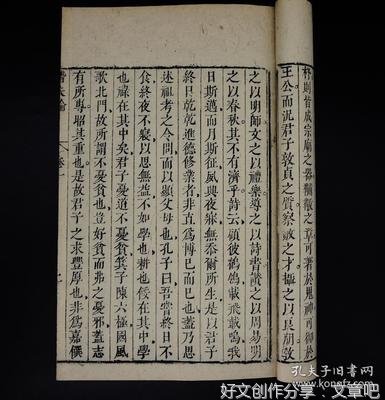 杼則皆成宗廟之器黼黻之章可著於鬼神可御於
王公而況君子敦貞之質察敏之才攝之以良朋教
之以明師文之以禮樂導之以詩書讚之以周易明
之以春秋其不有濟乎詩云顧彼鶺鴒載飛載鳴我
日斯邁而月斯征夙興夜寐無忝爾所生是以君子
終日乾乾進德修業者非直為博已而已也蓋乃思
述祖考之令問而以顯父母也孔子曰吾嘗終日不
食終夜不寢以思無益不如學也耕也餒在其中學
也祿在其中矣君子憂道不憂貧箕子陳六極國風
歌北門故所謂不憂貧也豈好貧而弗之憂邪蓋志
有所專昭其重也是故君子之求豐厚也非為嘉饌
潛夫論 卷一
孔夫子旧书网
好文创作分享:文章吧